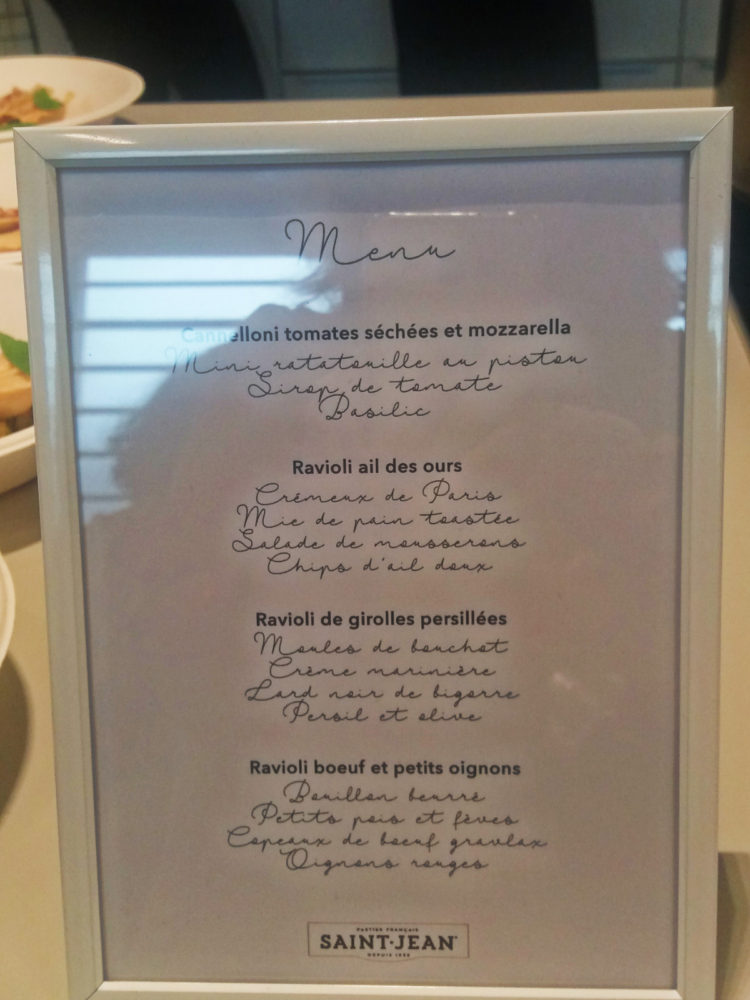 Menu
Cannelloni tomates séchées et mozzarella
Mini ratatouille au pistou
Sirop de tomate
Basilic
Ravioli ail des ours
Crémeux de Paris
Mie de pain toastée
Salade de mousserons
Chips d'ail doux
Ravioli de girolles persillées
Moules de bouchot
Crème marinière
Lard noir de bigorre
Persil et olive
Ravioli boeuf et petits oignons
Bouillon beurré
Petits pois et fèves
Copeaux de boeuf gravlax
Oignons rouges
PASTIER FRANÇAIS
SAINT·JEAN
DEPUIS 1935